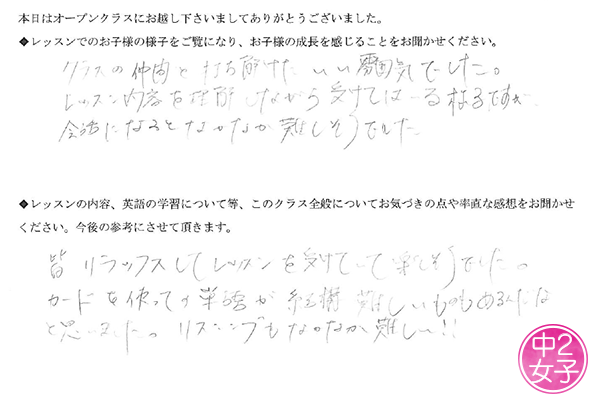 本日はオープンクラスにお越し下さいましてありがとうございました。
◆レッスンでのお子様の様子をご覧になり、お子様の成長を感じることをお聞かせください。
クラスの仲間と打ち解けた いい雰囲気でした。
レッスン内容を理解しながら受けてはいる様ですが
会話になるとなかなか難しそうでした。
◆レッスンの内容、英語の学習について等、このクラス全般についてお気づきの点や率直な感想をお聞かせ
ください。今後の参考にさせて頂きます。
皆 リラックスしてレッスンを受けていて楽しそうでした。
カードを使っての単語が結構難しいものもあるんだな
と思いました。リスニングもなかなか難しい!!
中2
女子